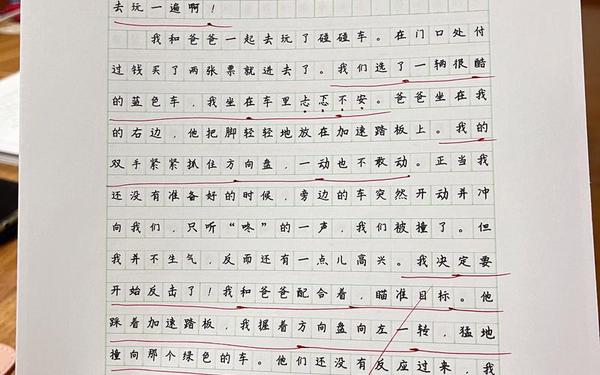 去玩一遍啊！
我和爸爸一起去玩了碰碰车。在门口处付
过钱买了两张票就进去了。我们选了一辆很酷
的蓝色车，我坐在车里忐忑不安。爸爸坐在我
的右边，他把脚轻轻地放在加速踏板上。我的
双手紧紧抓住方向盘，一动也不敢动。正当我
还没有准备好的时候，旁边的车突然开动并冲
向我们，只听“咚”的一声，我们被撞了。但
我并不生气，反而还有一点儿高兴。我决定要
开始反击了！我和爸爸配合着，瞄准目标。他
踩着加速踏板，我握着方向盘向左一转，猛地
撞向那个绿色的车。他们还没有反应过来，我